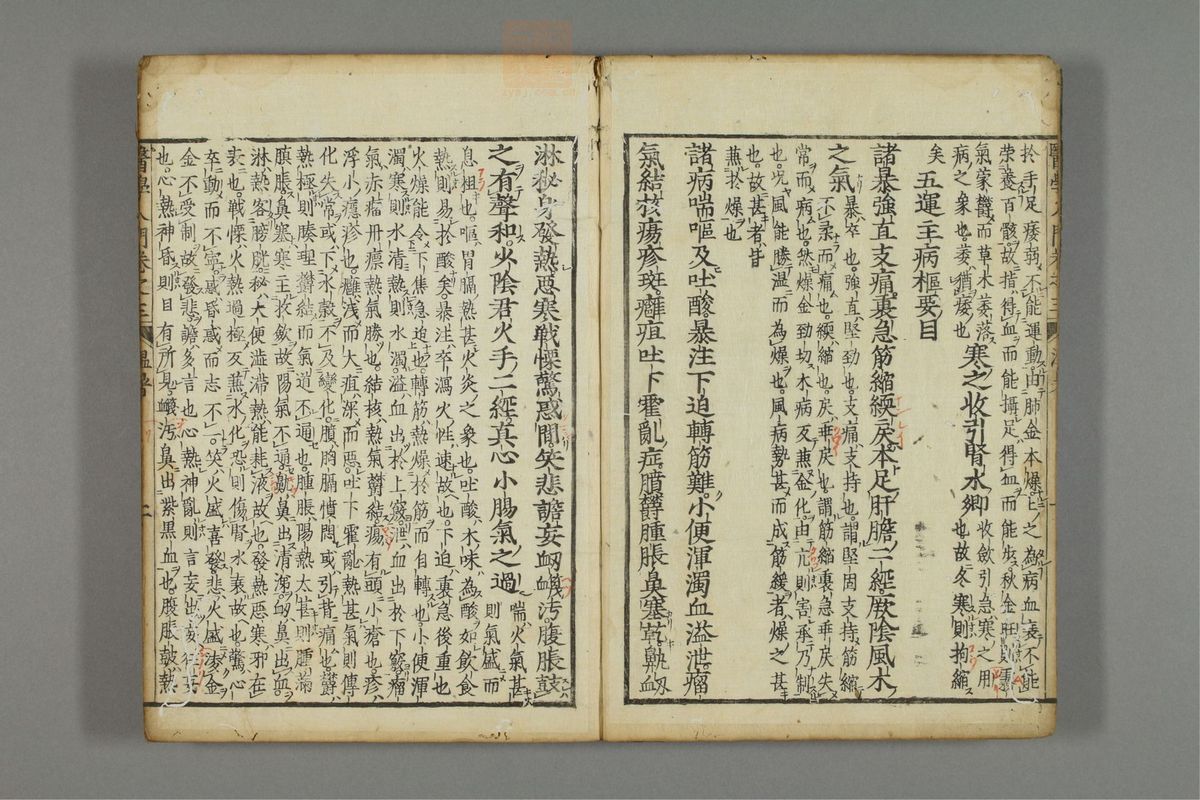 於手足痿弱不能運動由肺金本燥燥之為病血衰不能
榮養百骸故指得血而能攝足得血而能步秋金旺則
氣蒙鬱而草木萎落
病之象也萎猶痿也
寒之收引腎水鄉
收斂引急寒之用
也故冬寒則拘縮
矣
五運主病樞要目
諸暴強直支痛裏急筋縮緛戾本足肝膽二經厥陰風木
之氣
暴卒也強直堅勁也支痛支持也謂堅固支持筋縮
不柔而痛也緛縮也戾乖戾也謂筋縮裏急乖戾失
常而病也然燥金勁切木病反兼金化由亢則害承乃制
也况風能勝溫而為燥也風病勢甚而成筋緩者燥之甚
也故甚者皆
兼於燥也
諸病喘嘔及吐酸暴注下迫轉筋難小便渾濁血溢泄瘤
氣結核瘍疹斑癰疽吐下霍亂症臆鬱腫脹鼻塞乾鼽衂
淋秘身發熱惡寒戰慄驚惑間笑悲譫妄衂衊污腹脹鼓
之有聲和火陰君火手二經真心小腸氣之過
喘火氣甚
則氣盛而
息粗也嘔胃膈熱甚火炎之象也吐酸木味為酸如飲食
熱則易於酸矣暴注卒瀉火性速故也下迫裏急後重也
火燥能令下焦急迫也轉筋熱燥於筋而自轉也小便渾
濁寒則水清熱則水濁溢血出於上竅泄血出於下竅瘤
氣赤瘤丹熛熱氣勝也結核熱氣鬱結瘍有頭小瘡也疹
浮小癮疹也癰浅而大疽深而惡吐下霍亂熱甚氣則傳
化失常或下水穀不及變化臆胸膈憤悶或引背痛也鬱
熱極則腠理鬱結而氣道不通也腫脹陽熱太甚則腫滿
䐜脹鼻塞寒主收斂故陽氣不通鼽鼻出清濁衂鼻出血
淋熱客膀胱秘大便澁滞熱能耗液故也發熱惡寒邪在
表也戰慄火熱過極反兼水化恐則傷腎水衰故也驚心
卒動而不寧惑昏惑而志不一笑火盛喜發悲火盛凌金
金不受制故發悲譫多言也心熱神亂則言妄出妄狂妄
也心熱神昏則目有所見衊污鼻出紫黑血也腹脹鼓熱
醫學入門卷之三
溫暑
二